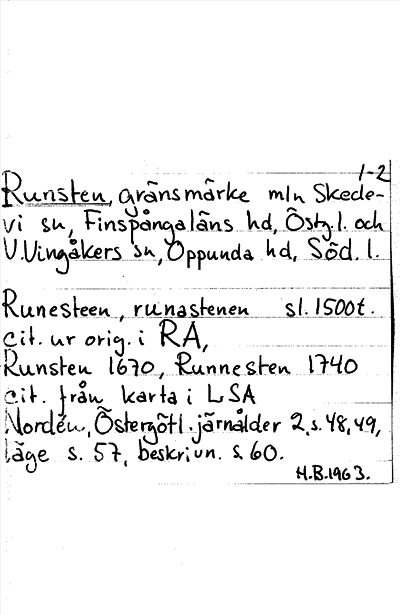 1-2
Runsten, gränsmärke mln Skede-
vi sn, Finspångaläns hd, Östg.l. och
V.Vingåkers sn, Oppunda hd, Söd. l.
Runesteen, runastenen sl. 1500t.
cit. ur orig. i RA,
Runsten 1670, Runnesten 1740
cit. från karta i LSA
Nordén, Östergötl. järnålder 2, s. 48, 49,
läge s. 57, beskrivn. s. 60.
H.B. 1963.